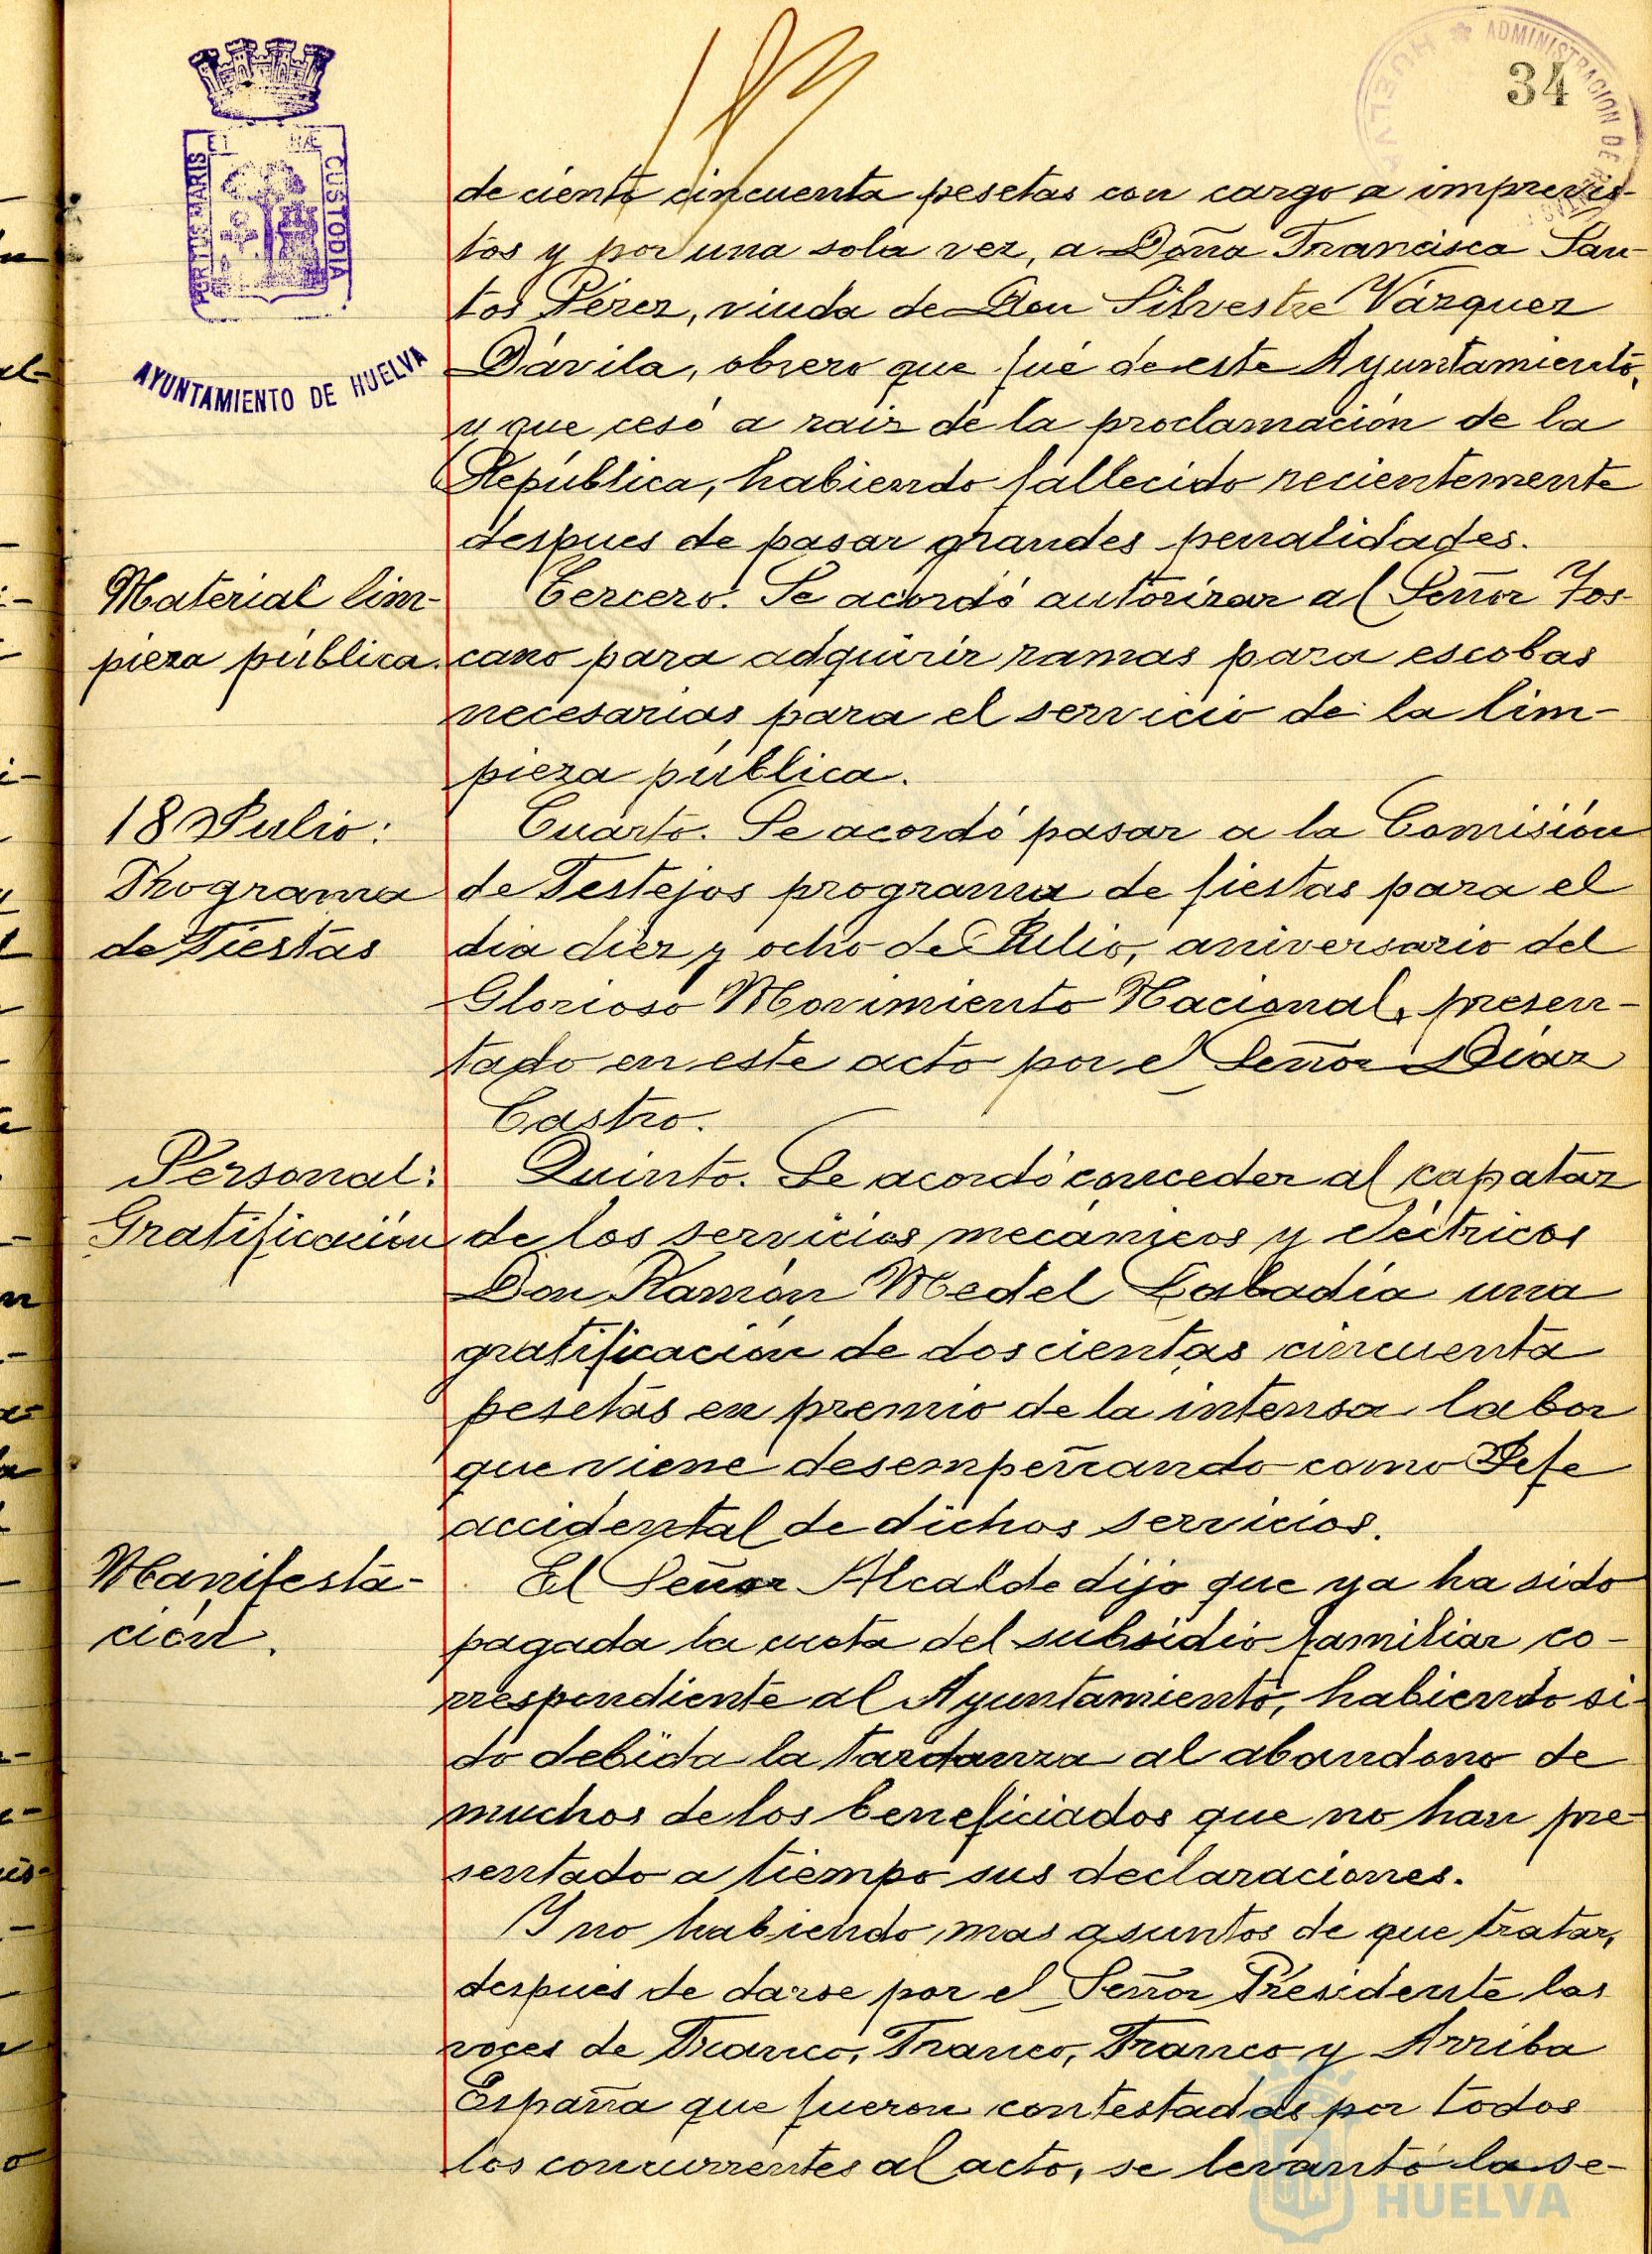 34
HUELVA ADMINISTRACION DE RENTAS
PORTUS MARIS ET CUSTODIA
AYUNTAMIENTO DE HUELVA
de ciento cincuenta pesetas con cargo a imprevis-
tos y por una sola vez, a Doña Francisca San-
tos Pérez, viuda de Don Silvestre Vázquez
Dávila, obrero que fué de este Ayuntamiento,
y que cesó a raiz de la proclamación de la
República, habiendo fallecido recientemente
despues de pasar grandes penalidades.
Material lim-
pieza pública.
Tercero. Se acordó autorizar al Señor Tos-
cano para adquirir ramas para escobas
necesarias para el servicio de la lim-
pieza pública.
18 Julio:
Programa
de Fiestas
Cuarto. Se acordó pasar a la Comisión
de Festejos programa de fiestas para el
dia diez y ocho de Julio, aniversario del
Glorioso Movimiento Nacional, presen-
tado en este acto por el Señor Díaz
Castro.
Personal:
Gratificación
Quinto. Se acordó conceder al capataz
de los servicios mecánicos y eléctricos
Don Ramón Medel Labadía una
gratificación de doscientas cincuenta
pesetas en premio de la intensa labor
que viene desempeñando como Jefe
accidental de dichos servicios.
Manifesta-
ción.
El Señor Alcalde dijo que ya ha sido
pagada la cuota del subsidio familiar co-
rrespondiente al Ayuntamiento, habiendo si-
do debida la tardanza al abandono de
muchos de los beneficiados que no han pre-
sentado a tiempo sus declaraciones.
Y no habiendo mas asuntos de que tratar,
despues de darse por el Señor Presidente las
voces de Franco, Franco, Franco y Arriba
España que fueron contestadas por todos
los concurrentes al acto, se levantó la se-
HUELVA